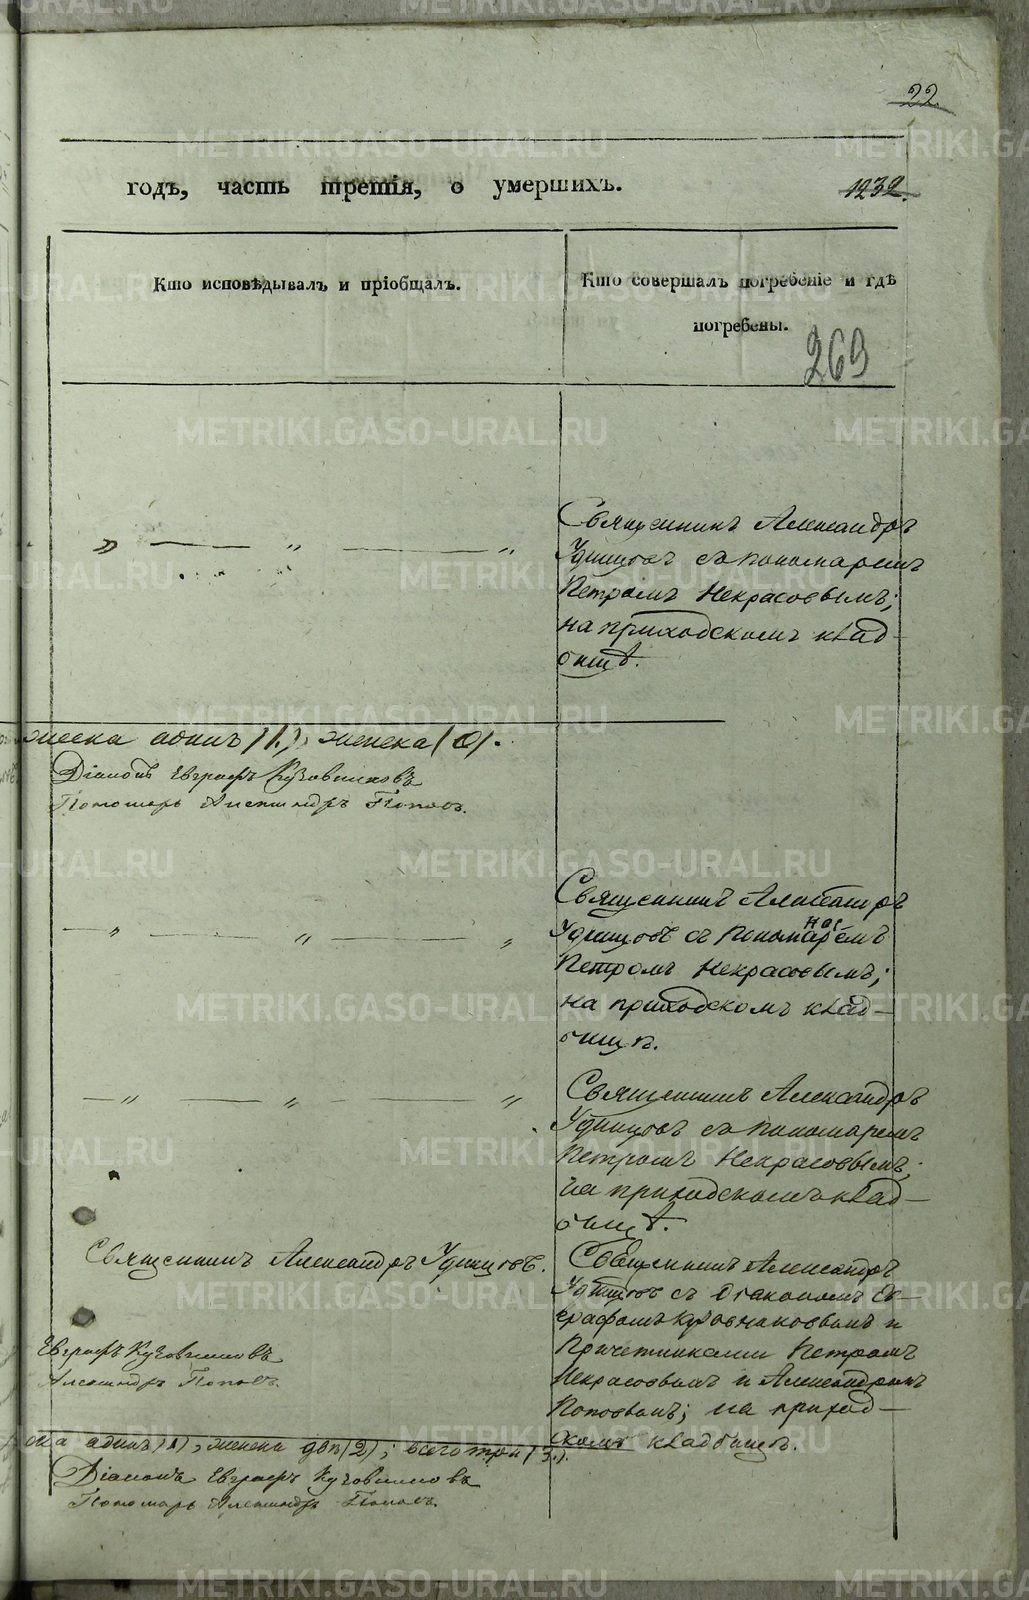 22.
годъ, часть третія, о умершихъ.
1232.
Кто исповѣдывалъ и пріобщалъ.
Кто совершалъ погребеніе и гдѣ
погребены.
269
Священникъ Александръ
Удинцовъ съ пономаремъ
Петромъ Некрасовымъ;
на приходскомъ клад-
бищѣ.
одинъ (1), женска (0).
Діаконъ Евграфъ Кузовниковъ
Пономарь Александръ Поповъ.
Священникъ Александръ
Удинцовъ съ пономарёмъ
Петромъ Некрасовымъ;
на приходскомъ клад-
бищѣ.
Священникъ Александръ
Удинцовъ съ пономаремъ
Петромъ Некрасовымъ;
на приходскомъ клад-
бищѣ.
Священникъ Александръ Удинцовъ.
Священникъ Александръ
Удинцовъ съ діакономъ Ев-
графомъ Кузовниковымъ и
Причетниками Петромъ
Некрасовымъ и Александромъ
Поповымъ; на приход-
скомъ кладбищѣ.
Евграфъ Кузовниковъ
Александръ Поповъ.
одинъ (1), женска двѣ (2); всего три (3).
Діаконъ Евграфъ Кузовниковъ
Пономарь Александръ Поповъ.
METRIKI.GASO-URAL.RU